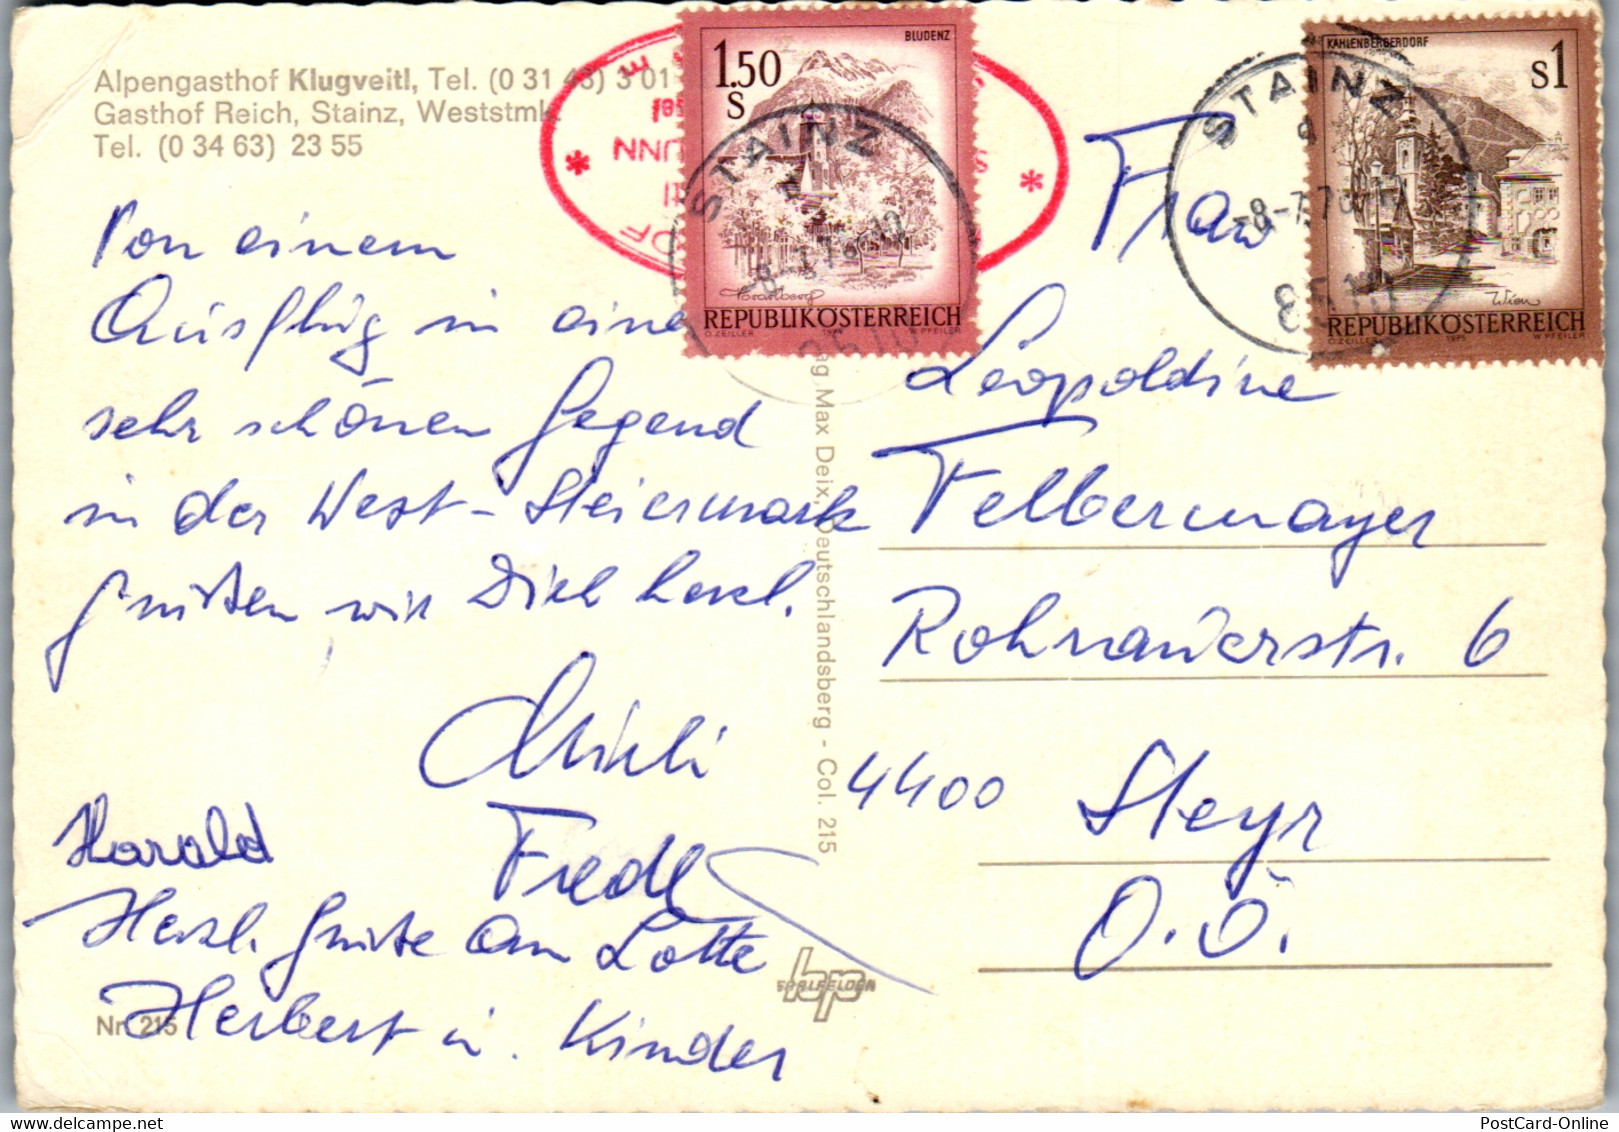 Alpengasthof Klugveitl, Tel. (0 31 43) 3 01
Gasthof Reich, Stainz, Weststmk.
Tel. (0 34 63) 23 55
Von einem
Ausflug in eine
sehr schönen Gegend
in der West-Steiermark
grüßen wir Dich herzl.
Mikli
Friedl
Harald
Herzl. Grüße an Lotte
Herbert u. Kinder
Nr. 215
Max Deix, Deutschlandsberg - Col. 215
BLUDENZ
1.50
S
Vorarlberg
REPUBLIK ÖSTERREICH
O. ZEILLER 1975 W. PFEILER
STAINZ
KAHLENBERGERDORF
S1
Wien
REPUBLIK ÖSTERREICH
O. ZEILLER 1975 W. PFEILER
STAINZ
8510
Frau
Leopoldine
Felbermayer
Rohrauerstr. 6
4400 Steyr
O.Ö.
PostCard-Online